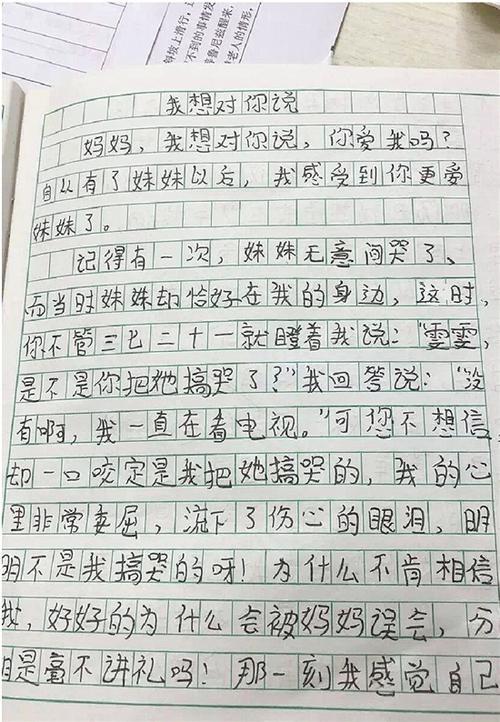 身坡上滑行,
不到的事情发
鲁尼兹醒来,
老人的情形,
我想对你说
妈妈,我想对你说,你爱我吗?
自从有了妹妹以后,我感受到你更爱
妹妹了。
记得有一次,妹妹无意间哭了、
而当时妹妹却恰好在我的身边,这时,
你不管三七二十一就瞪着我说:“雯雯,
是不是你把她搞哭了?”我回答说:“没
有啊,我一直在看电视。”可您不想信,
却一口咬定是我把她搞哭的,我的心
里非常委屈,流下了伤心的眼泪,明
明不是我搞哭的呀!为什么不肯相信
我,好好的为什么会被妈妈误会,分
明是毫不讲礼吗!那一刻我感觉自己